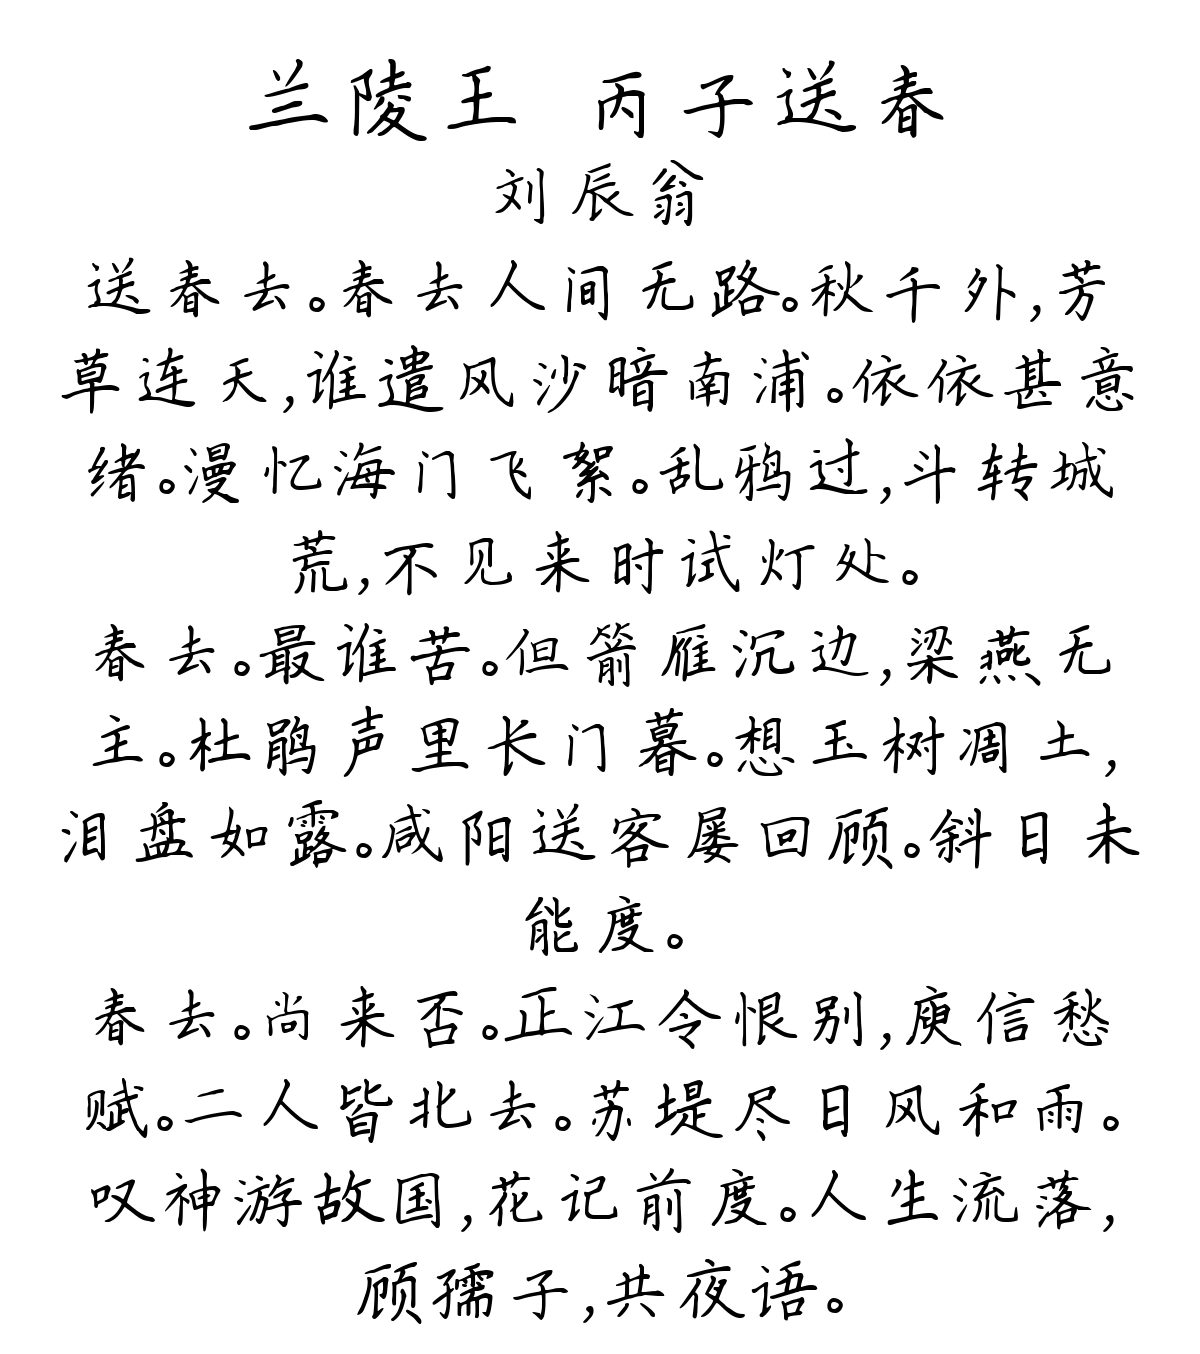 兰陵王 丙子送春
刘辰翁
送春去。春去人间无路。秋千外,芳
草连天,谁遣风沙暗南浦。依依甚意
绪。漫忆海门飞絮。乱鸦过,斗转城
荒,不见来时试灯处。
春去。最谁苦。但箭雁沉边,梁燕无
主。杜鹃声里长门暮。想玉树凋土,
泪盘如露。咸阳送客屡回顾。斜日未
能度。
春去。尚来否。正江令恨别,庾信愁
赋。二人皆北去。苏堤尽日风和雨。
叹神游故国,花记前度。人生流落,
顾孺子,共夜语。